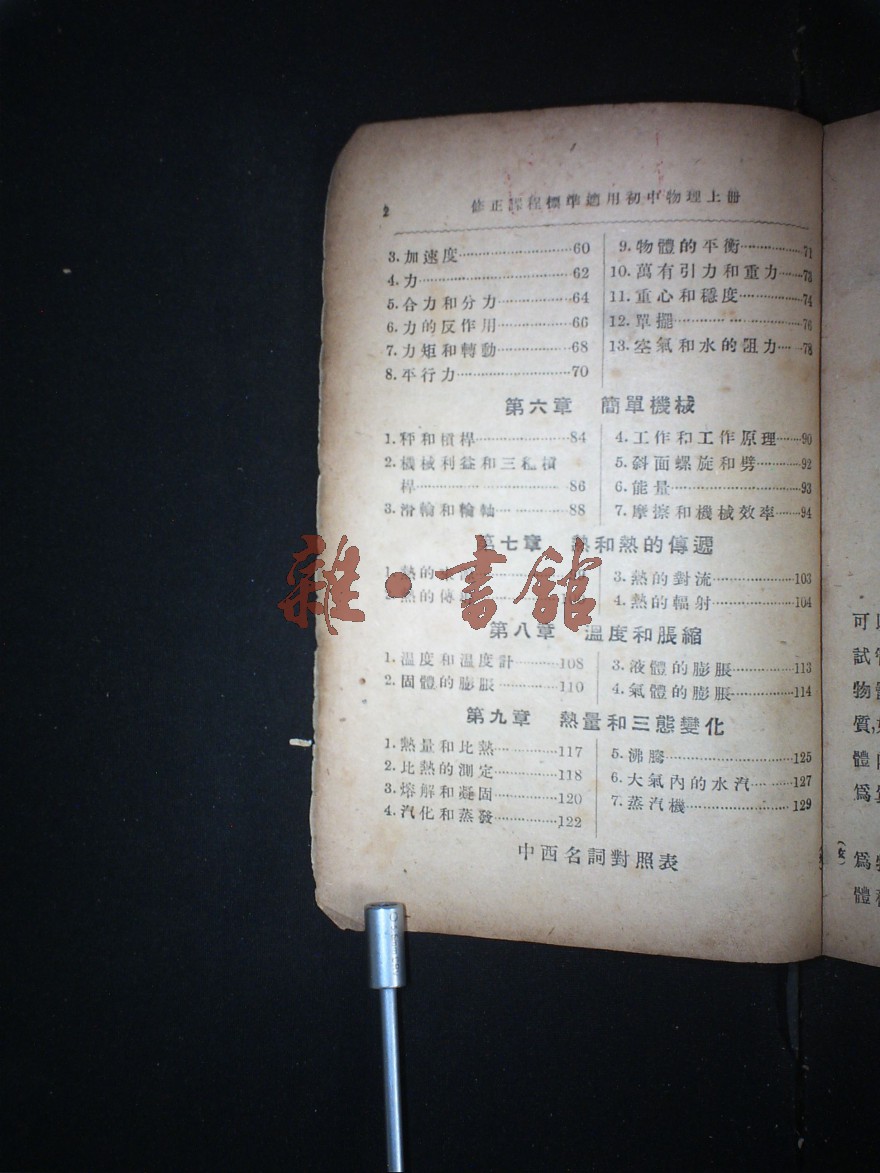 2
修正課程標準適用初中物理上冊
3. 加速度……60
4. 力……62
5. 合力和分力……64
6. 力的反作用……66
7. 力矩和轉動……68
8. 平行力……70
9. 物體的平衡……71
10. 萬有引力和重力……73
11. 重心和穩度……74
12. 單擺……76
13. 空氣和水的阻力……78
第六章 簡單機械
1. 秤和槓桿……84
2. 機械利益和三種槓
桿……86
3. 滑輪和輪軸……88
4. 工作和工作原理……90
5. 斜面螺旋和劈……92
6. 能量……93
7. 摩擦和機械效率……94
第七章 熱和熱的傳遞
1. 熱的
熱的傳
3. 熱的對流……103
4. 熱的輻射……104
第八章 溫度和脹縮
1. 溫度和溫度計……108
2. 固體的膨脹……110
3. 液體的膨脹……113
4. 氣體的膨脹……114
第九章 熱量和三態變化
1. 熱量和比熱……117
2. 比熱的測定……118
3. 熔解和凝固……120
4. 汽化和蒸發……122
5. 沸騰……125
6. 大氣內的水汽……127
7. 蒸汽機……129
中西名詞對照表
雜·書館
可以
試管
物體
質,
體內
爲
爲
體積